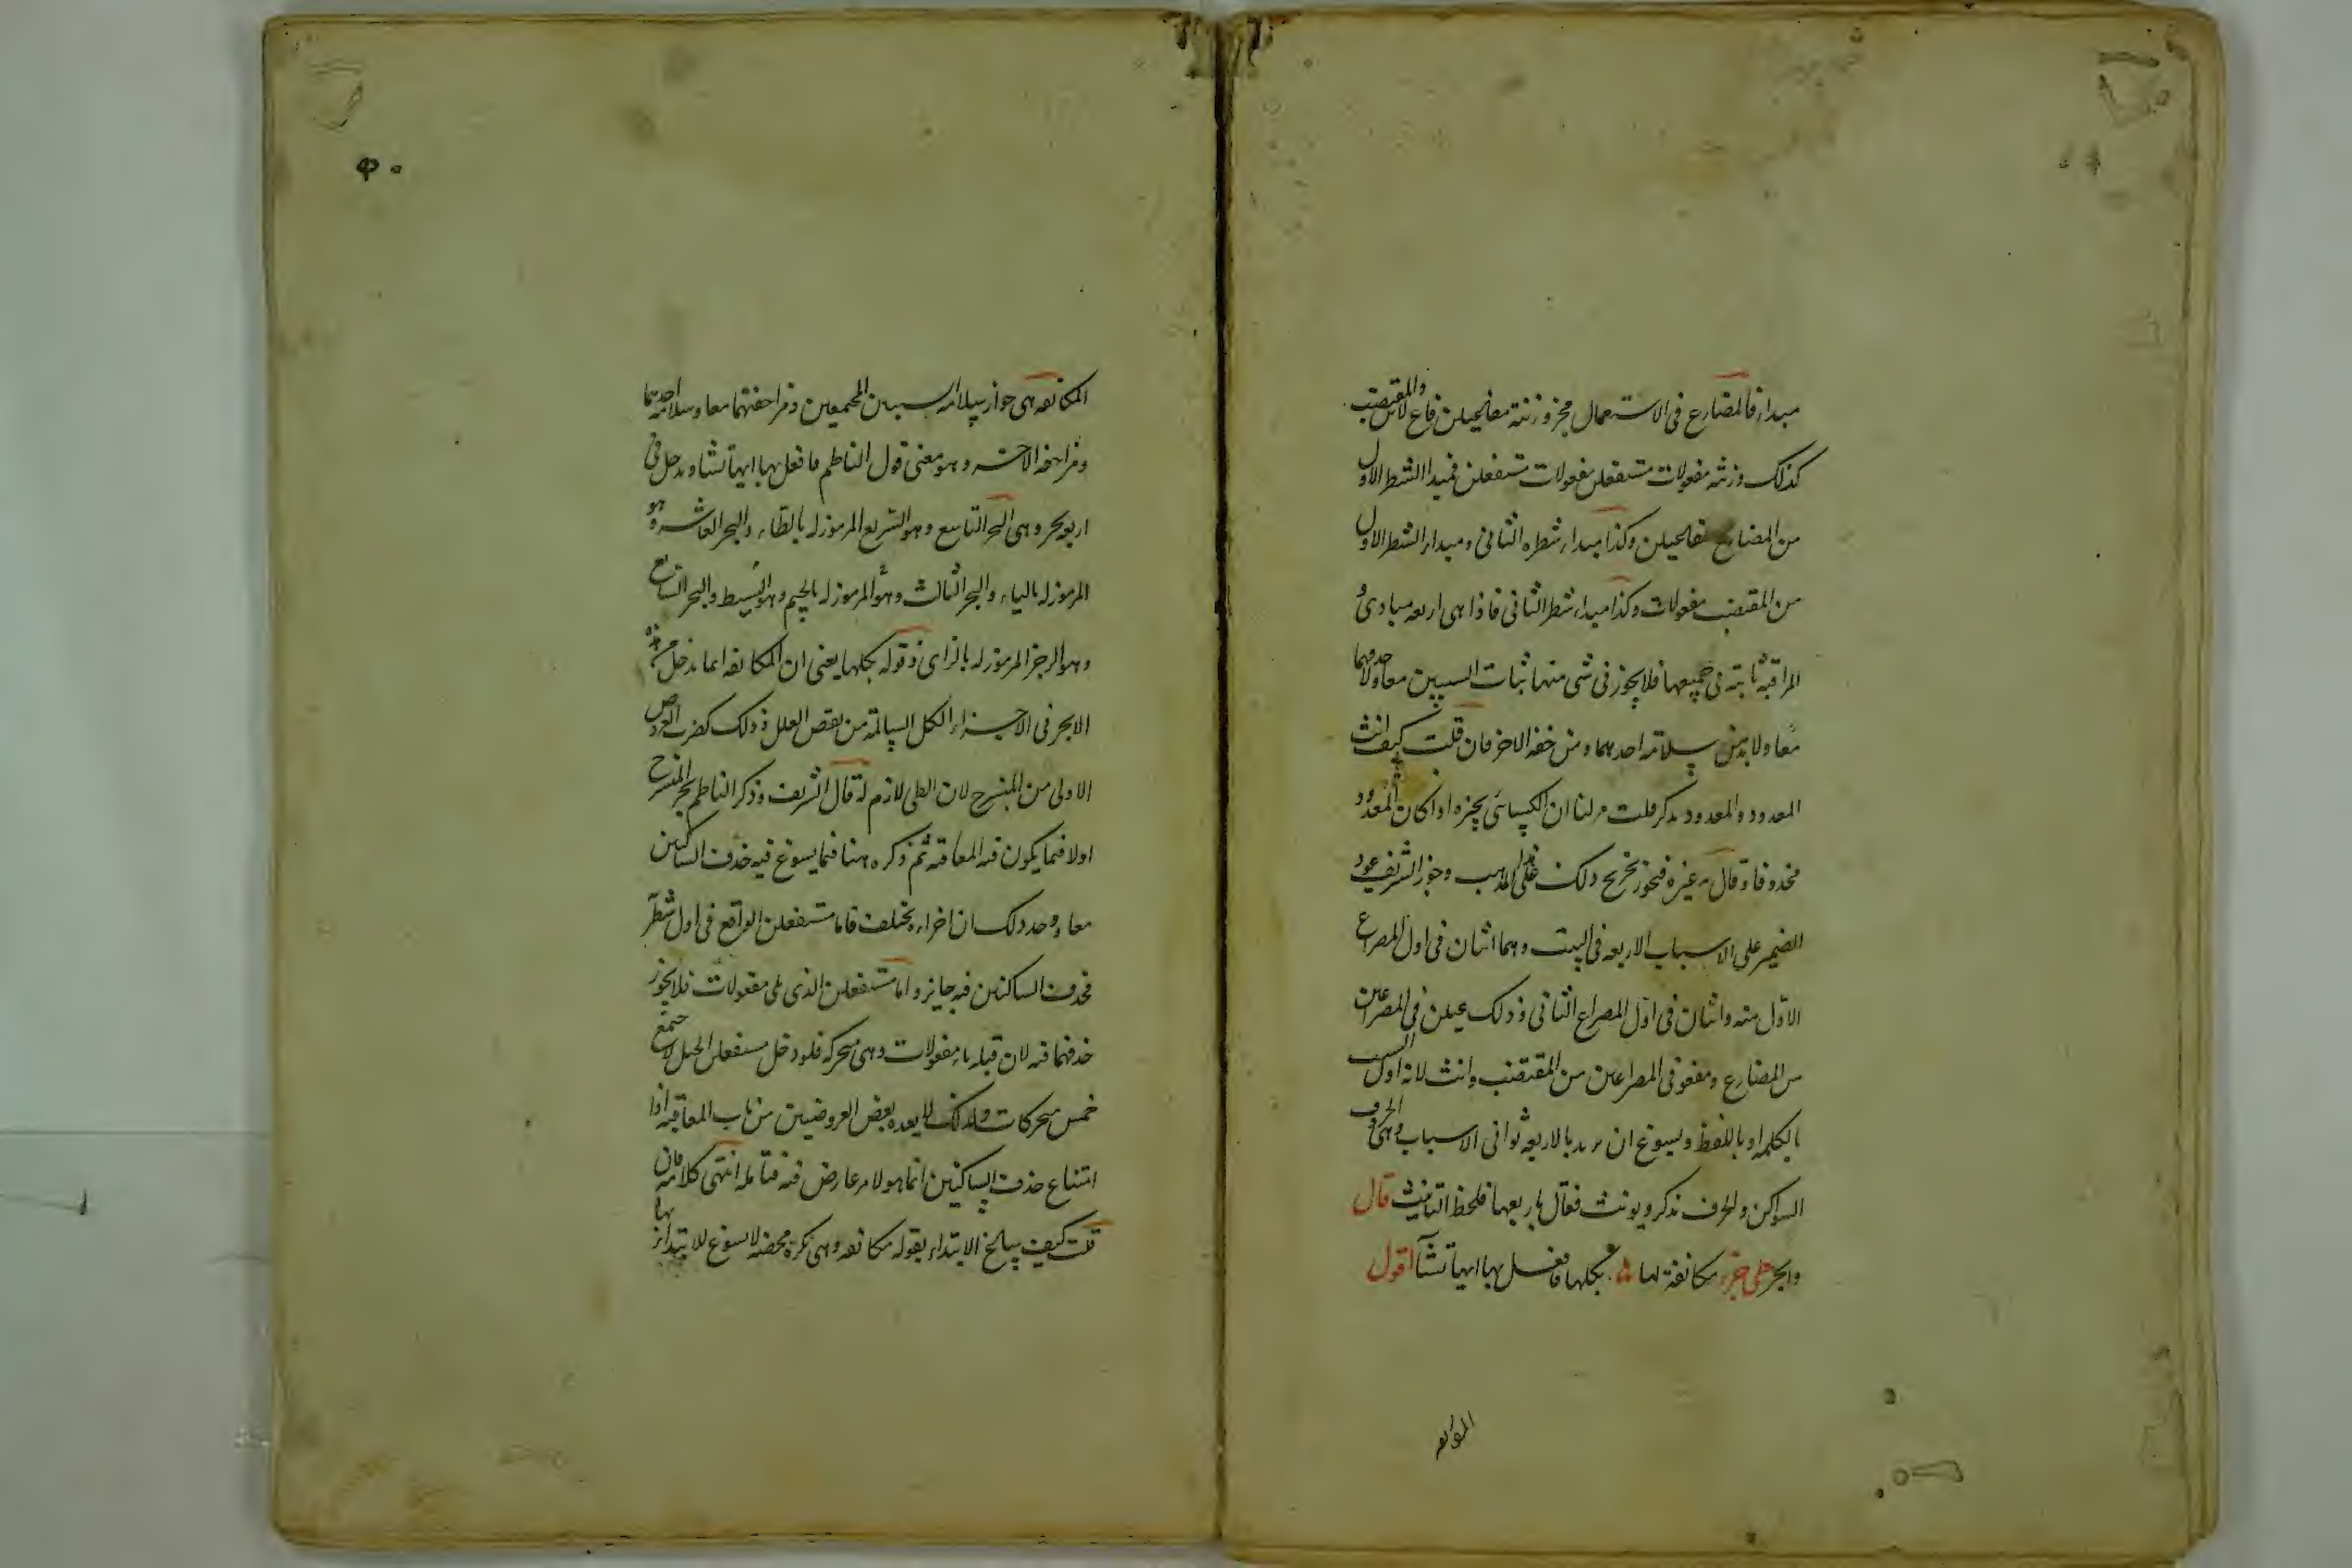 مبدا، فالمضارع فى الاستعمال مجزو زنته مفاعيلن فاع لاتن والمقتضب
كذلك وزنته مفعولات مستفعلن مفعولات مستفعلن فمبدا الشطر الاول
من المضارع مفاعيلن وكذا مبدا، شطره الثانى ومبدا، الشطر الاول
من المقتضب مفعولات وكذا مبدا، شطر الثانى فاذا هى اربعه مبادى و
المراقبة ثابتة فى جميعها فلا يجوز فى شى منها ثبات السببين معا ولا حذفهما
معا ولا بد من سلامة احدهما ومزاحفه الاخر فان قلت كيف انث
المعدود والمعدود مذكر قلت مر لنا ان الكسائى يجيزه اذا كان المعدود
محذوفا وقال به غيره فيجوز تخريج ذلك على هذا المذهب وجوز الشريف عود
الضمير على الاسباب الاربعه فى البيت وهما اثنان فى اول المصراع
الاول منه واثنان فى اول المصراع الثانى وذلك عيلن فى المصراعين
من المضارع ومفعو فى المصراعين من المقتضب وانث لانه اول السبب
بالكلمه او باللفظ ويسوغ ان يريد بالاربعه ثوانى الاسباب وهى الحروف
السواكن والحرف يذكر ويونث فقال باربعها فلحظ التانيث قال
والجر على جزء مكانفة لها بكلها فافعل بها ايها تشآ اقول
المكانفه
المكانفه هى جواز سلامه السببين المجتمعين ومزاحفتهما معا وسلامه احدهما
ومزاحفه الاخر وهو معنى قول الناظم فافعل بها ايها تشا ويدخل فى
اربعه بحر وهى البحر التاسع وهو السريع المرموز له بالطاء، والبحر العاشر وهو
المرموز له بالياء، والبحر الثالث وهو المرموز له بالجيم وهو البسيط والبحر السابع
وهو الرجز المرموز له بالزاى وقوله بكلها يعنى ان المكانفه انما يدخل من هذه
الابحر فى الاجزاء، الكل السالمة من نقص العلل وذلك كضرب العروض
الاولى من المنسرح لان الطى لازم له قال الشريف وذكر الناظم بحر المنسرح
اولا فيما يكون فيه المعاقبه ثم ذكره هنا فيما يسوغ فيه حذف الساكنين
معا ووجه ذلك ان اجزاءه يختلف فاما مستفعلن الواقع فى اول شطر
فحذف الساكنين فيه جايز واما مستفعلن الذى يلى مفعولات فلا يجوز
حذفهما فيه لان قبله تاء مفعولات وهى متحركه فلو دخل مستفعلن الخبل لاجتمع
خمس متحركات ولذلك لا يعده بعض العروضيين من باب المعاقبه اذا
امتناع حذف الساكنين انما هو لامر عارض فيه فتامله انتهى كلامه فان
قلت كيف ساغ الابتداء بقوله مكانفه وهى نكرة محضه لا مسوغ للابتداء بها